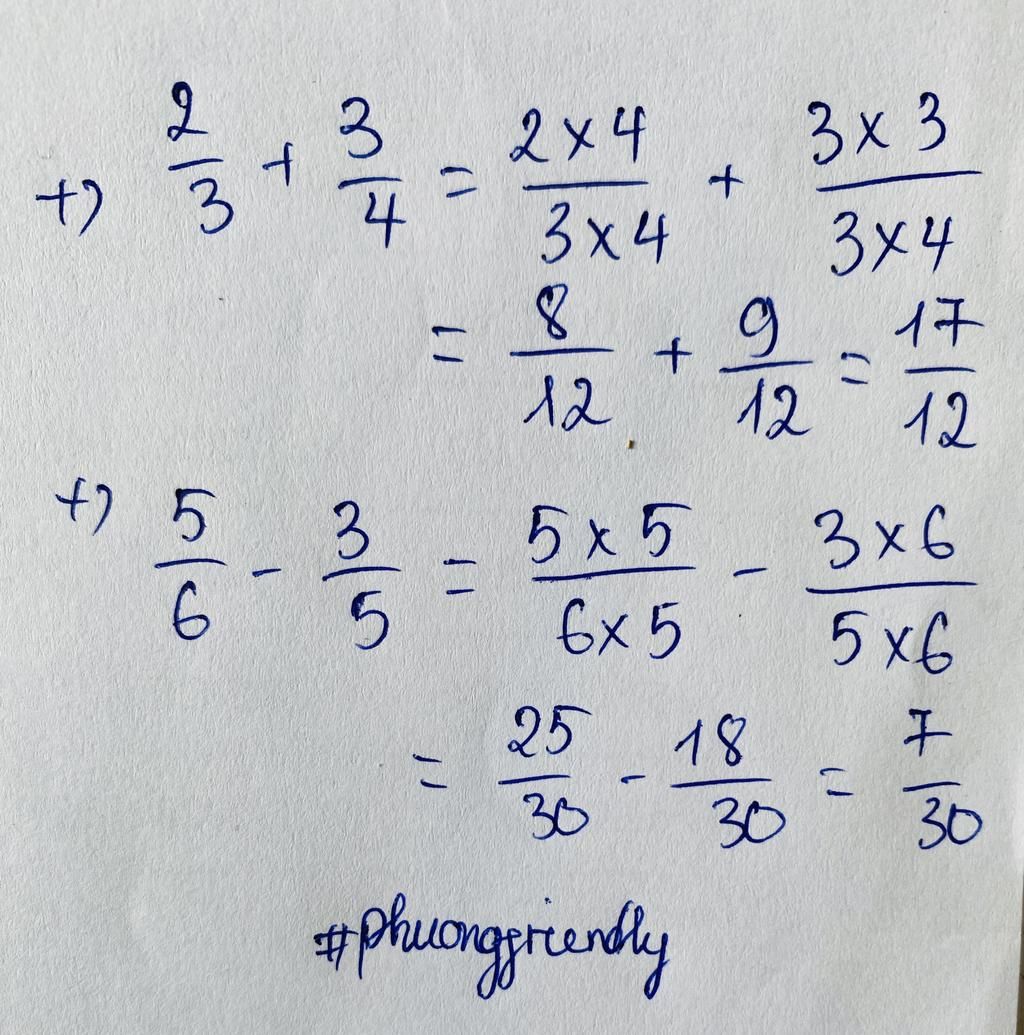 +) 2/3 + 3/4 = (2 x 4)/(3 x 4) + (3 x 3)/(3 x 4)
= 8/12 + 9/12 = 17/12
+) 5/6 - 3/5 = (5 x 5)/(6 x 5) - (3 x 6)/(5 x 6)
= 25/30 - 18/30 = 7/30
#phuongfriendly